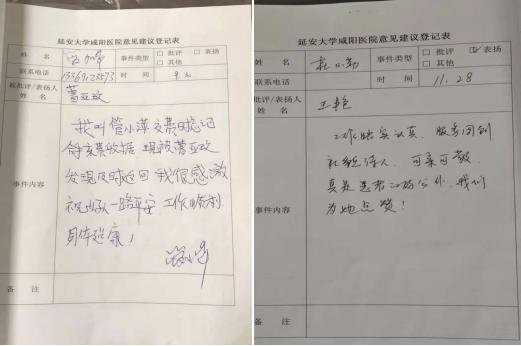 延安大学咸阳医院意见建议登记表
姓 名
事件类型
□ 批评 □ 表扬
□ 其他
联系电话
时 间
被批评/表扬人
姓 名
事件内容
我叫管小萍交费时忘记
拿交费收据
发现及时返回 我很感激
祝好人一路平安 工作顺利
身体健康!
备 注
延安大学咸阳医院意见建议登记表
姓 名
杜小勤
事件类型
□ 批评 ☑ 表扬
□ 其他
联系电话
时 间
11.28
被批评/表扬人
姓 名
王艳
事件内容
工作踏实认真、服务周到
礼貌待人、可亲可敬
真是患者的 我们
为她点赞!
备 注